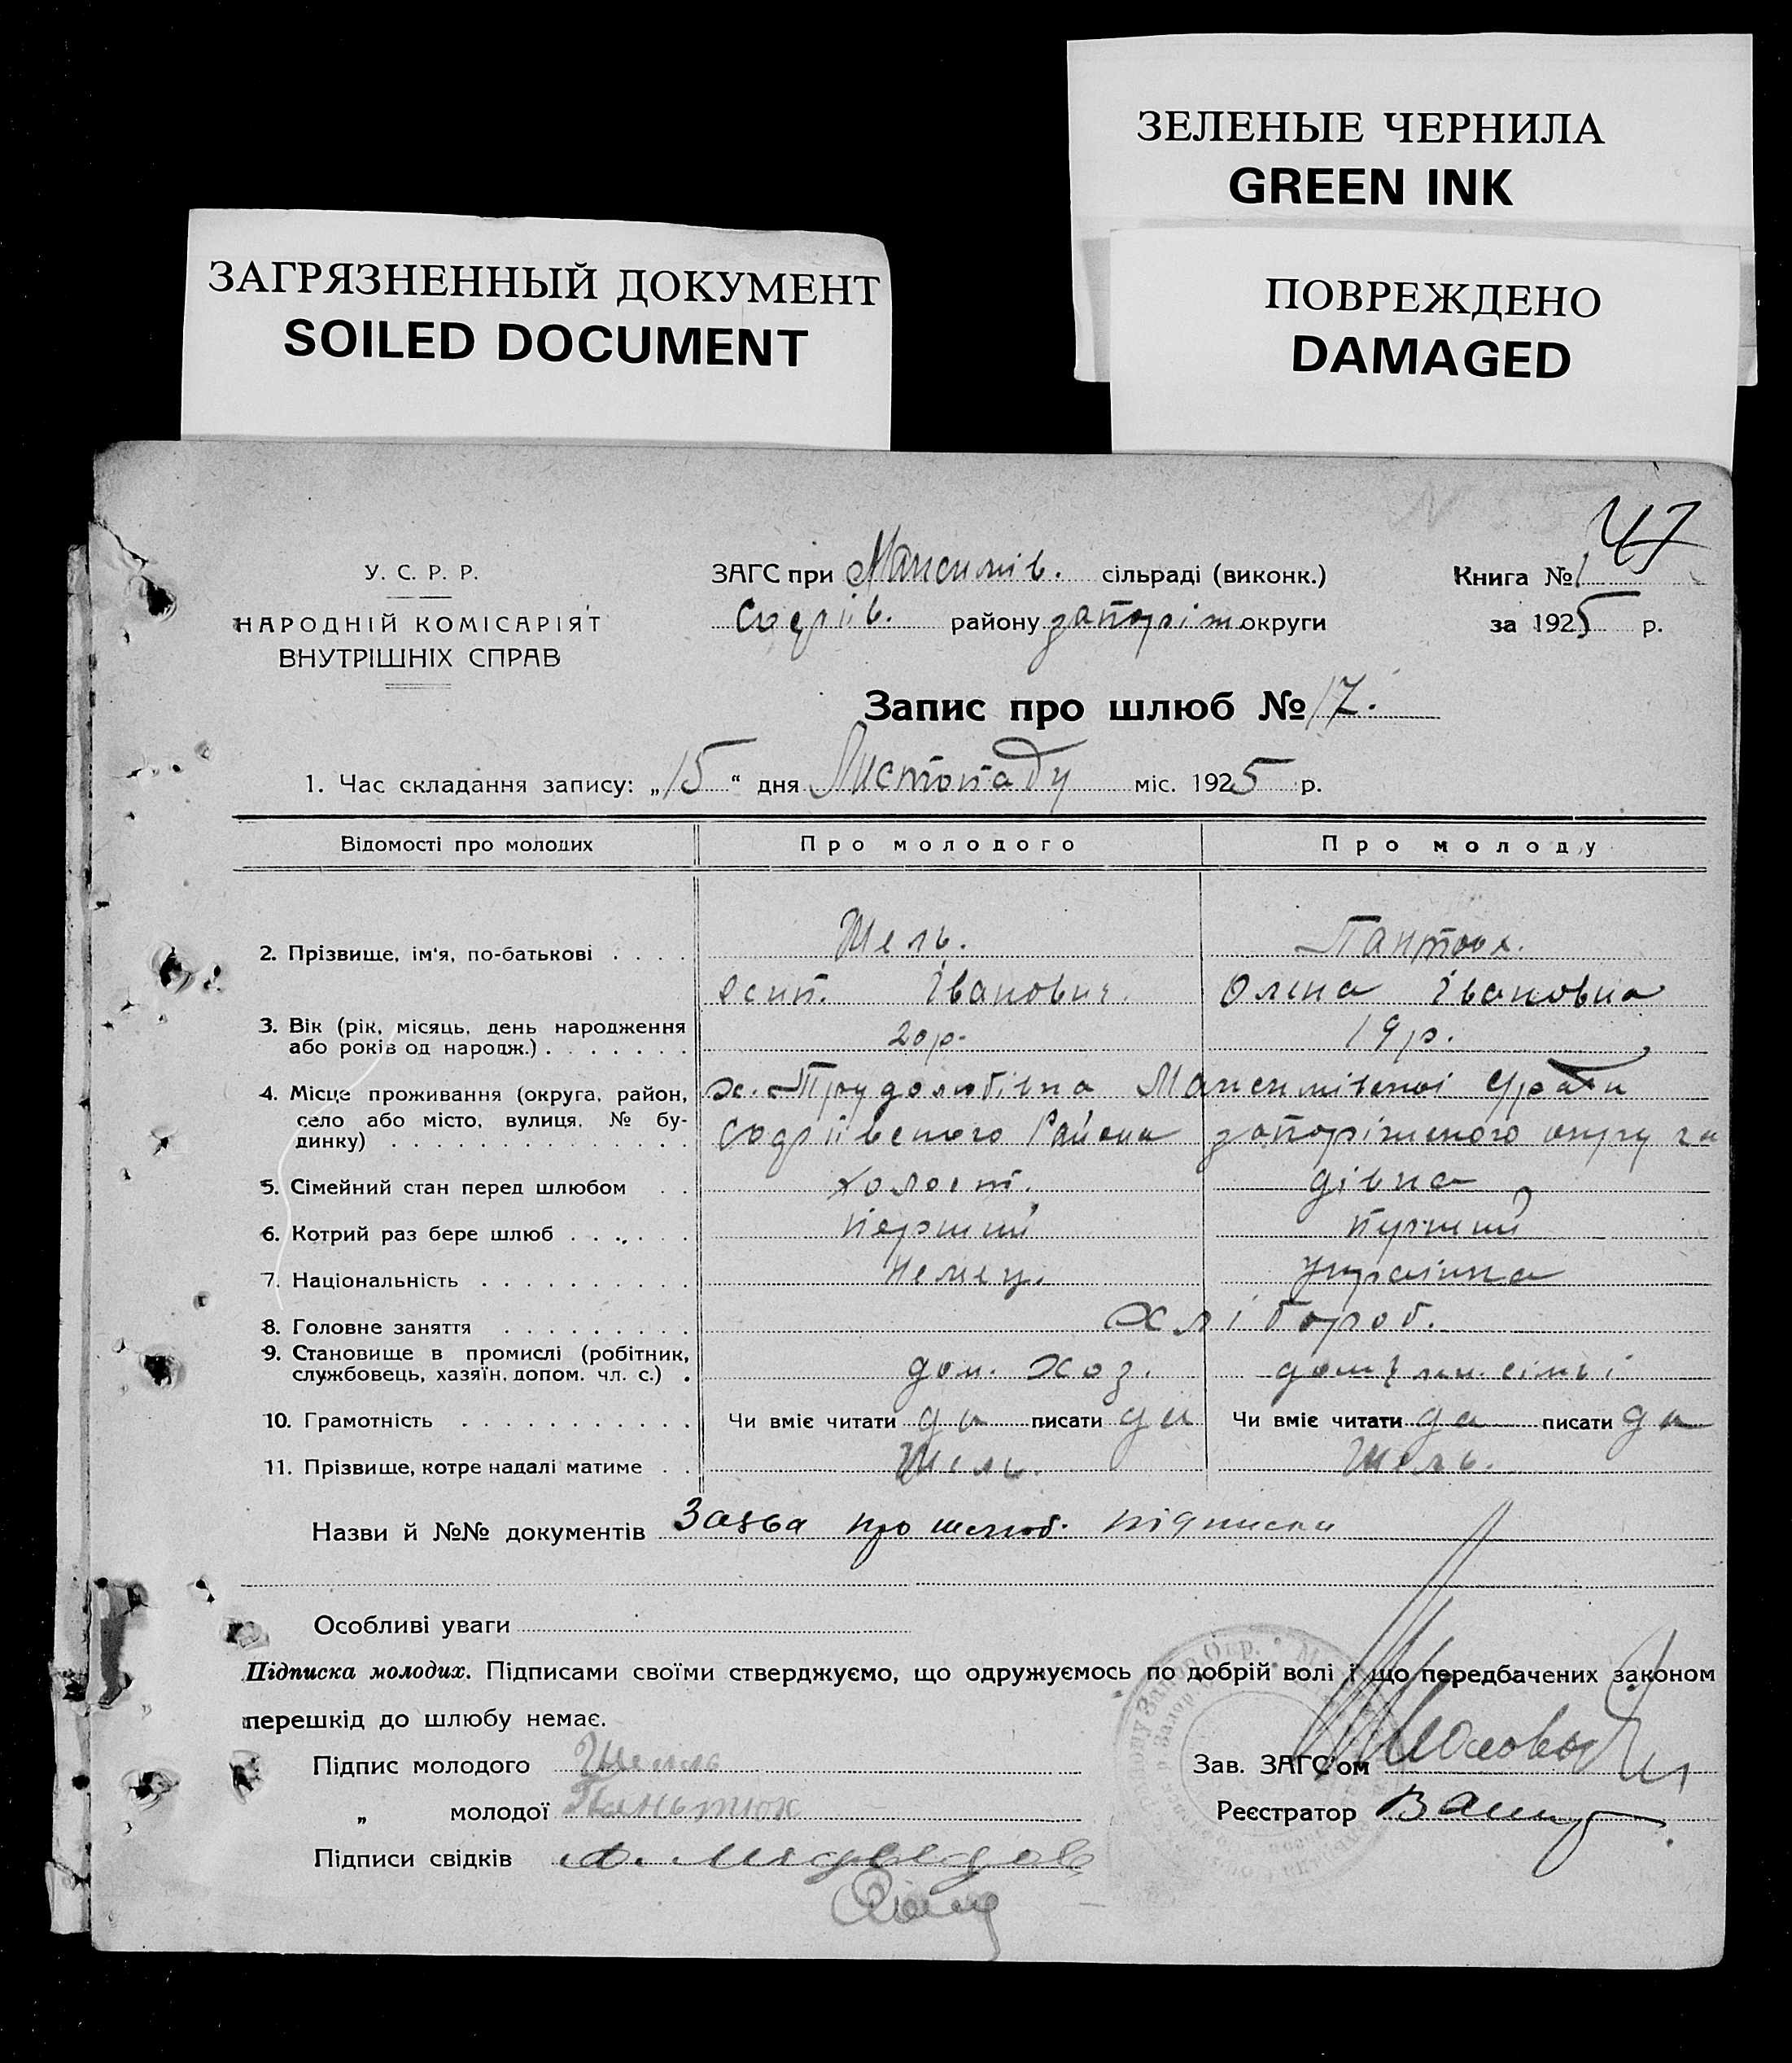 ЗЕЛЕНЫЕ ЧЕРНИЛА
GREEN INK
ЗАГРЯЗНЕННЫЙ ДОКУМЕНТ
SOILED DOCUMENT
ПОВРЕЖДЕНО
DAMAGED
47
У. С. Р. Р.
НАРОДНІЙ КОМІСАРІЯТ
ВНУТРІШНІХ СПРАВ
ЗАГС при Максимів. сільраді (виконк.)
району запоріж округи
Книга № 1
за 1925 р.
Запис про шлюб № 17.
1. Час складання запису: „15“ дня Листопаду міс. 1925 р.
Відомості про молодих Про молодого Про молоду
2. Прізвище, ім'я, по-батькові . . . . Шель.
Осип. Іванович. Олена Івановна
3. Вік (рік, місяць, день народження
або років од народж.) . . . . . . . 20 р. 19 р.
4. Місце проживання (округа, район,
село або місто, вулиця, № бу-
динку) . . . . . . . . . . . . . .
х. Трудолюбівка Максимівської
Района запоріжського округи
5. Сімейний стан перед шлюбом . . холост. дівка
6. Котрий раз бере шлюб . . . . . . перший перший
7. Національність . . . . . . . . . . немец. українка
8. Головне заняття . . . . . . . . . Хлібороб.
9. Становище в промислі (робітник,
службовець, хазяїн, допом. чл. с.) . дом. хоз. сімьі
10. Грамотність . . . . . . . . . . . Чи вміє читати да писати да Чи вміє читати да писати да
11. Прізвище, котре надалі матиме . . Шель. Шель.
Назви й №№ документів Заява про шлюб. підписка
Особливі уваги
Підписка молодих. Підписами своїми стверджуємо, що одружуємось по добрій волі і що передбачених законом
перешкід до шлюбу немає.
Підпис молодого Шелль
„ молодої Паньтюх
Підписи свідків
Зав. ЗАГС'ом
Реєстратор